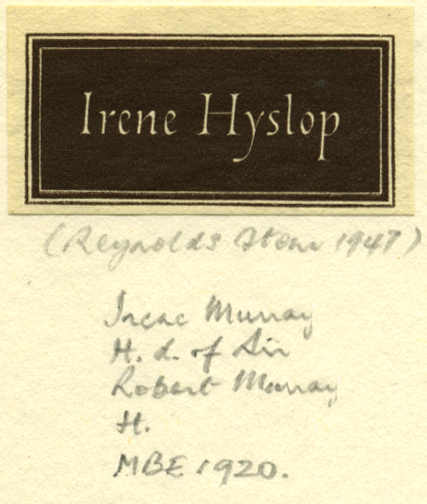 Irene Hyslop
(Reynolds Stone 1947)
Irene Murray
H. d. of Sir
Robert Murray
H.
MBE 1920.